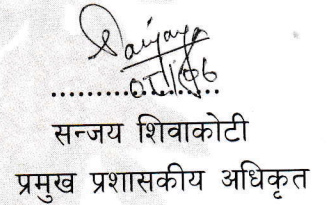 Sanjaya
....................
सन्जय शिवाकोटी
प्रमुख प्रशासकीय अधिकृत